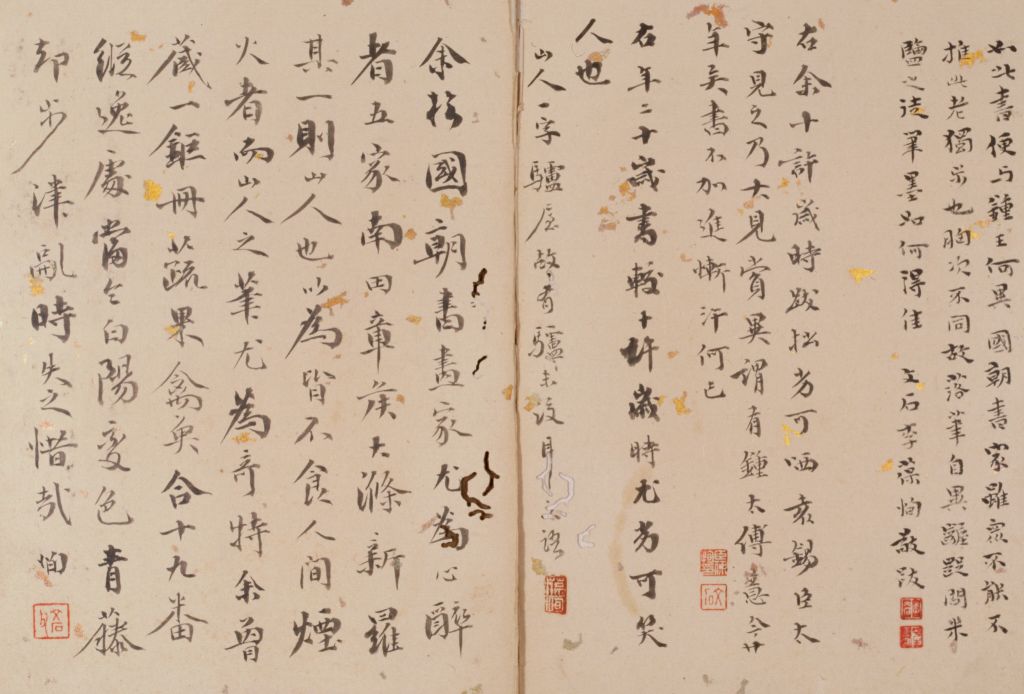 如此書便与鍾王何異國朝書家雖衆不能不
推此老獨步也胸次不同故落筆自異區區閒米
鹽之徒筆墨如何得佳 文石李葆恂敬跋
右余十許歲時跋拙劣可哂袁錫臣太
守見之乃大見賞異謂有鍾太傅意今廿
年矣書不加進慚汗何已
右年二十歲書較十許歲時尤劣可笑
人也
山人一字驢屋故有驢 月
余於國朝書畫家尤為心醉
者五家南田章侯大滌新羅
其一則山人也以為皆不食人間煙
火者而山人之筆尤為奇特余曾
藏一鉅冊蔬果禽魚合十九番
縱逸處當令白陽變色青藤
却步津亂時失之惜哉 恂